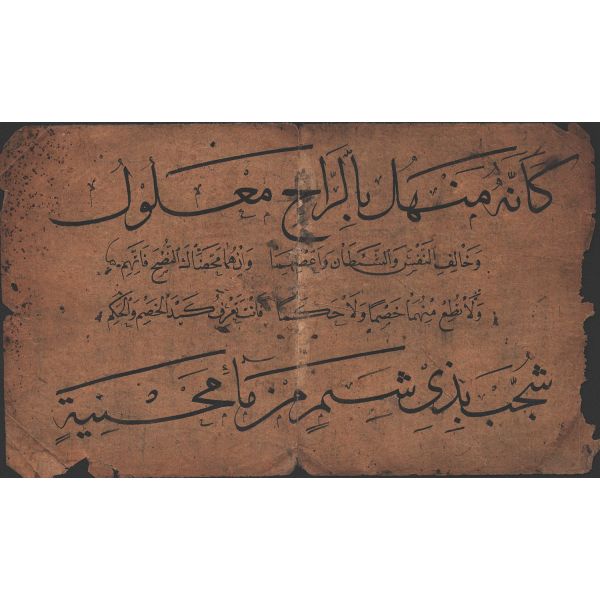 كَأَنَّهُ مَنْهَلٌ بِالرَّاحِ مَعْلُولُ
وَخَالِفِ النَّفْسَ وَالشَّيْطَانَ وَاعْصِهِمَا وَاِنْ هُمَا مَحَضَاكَ النُّصْحَ فَاتَّهِمِ
وَلَا تُطِعْ مِنْهُمَا خَصْمًا وَلَا حَكَمًا فَاَنْتَ تَعْرِفُ كَيْدَ الْخَصْمِ وَالْحَكَمِ
شُجَّتْ بِذِي شَبَمٍ مِنْ مَاءِ مَحْنِيَةٍ